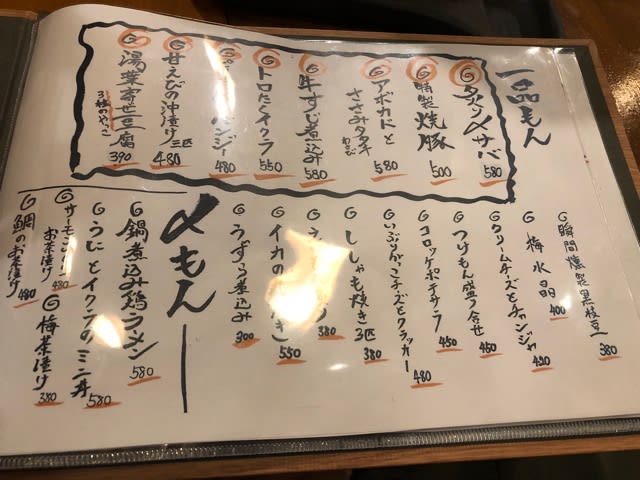 一品もん
炙り〆サバ 580
特製焼豚 500
アボカドと
ささみタタキ
わさび
580
牛すじ煮込み 580
トロたくイクラ 550
480
甘えびの沖漬け 三匹 480
湯葉寄せ豆腐
3種のやっこ
390
瞬間燻製黒枝豆 380
梅水晶 400
クリームチーズとチャンジャ 420
つけもん盛り合せ 450
コロッケポテサラ 450
いぶりがっこチーズとクラッカー 480
ししゃも焼き 3匹 380
380
イカの 550
うずら煮込み 300
〆もん
鍋煮込み鶏ラーメン 580
うにとイクラのミニ丼 580
サーモン
お茶漬け 480
梅茶漬け 380
鯛のお茶漬け 480